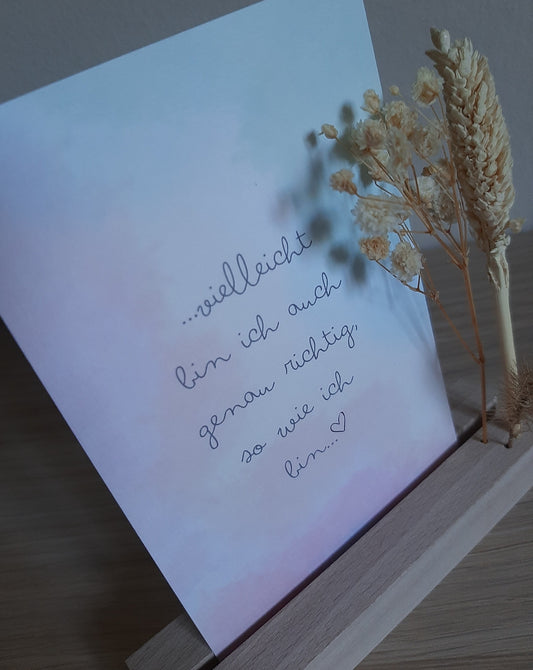 ...vielleicht
bin ich auch
genau richtig,
so wie ich
bin...♡